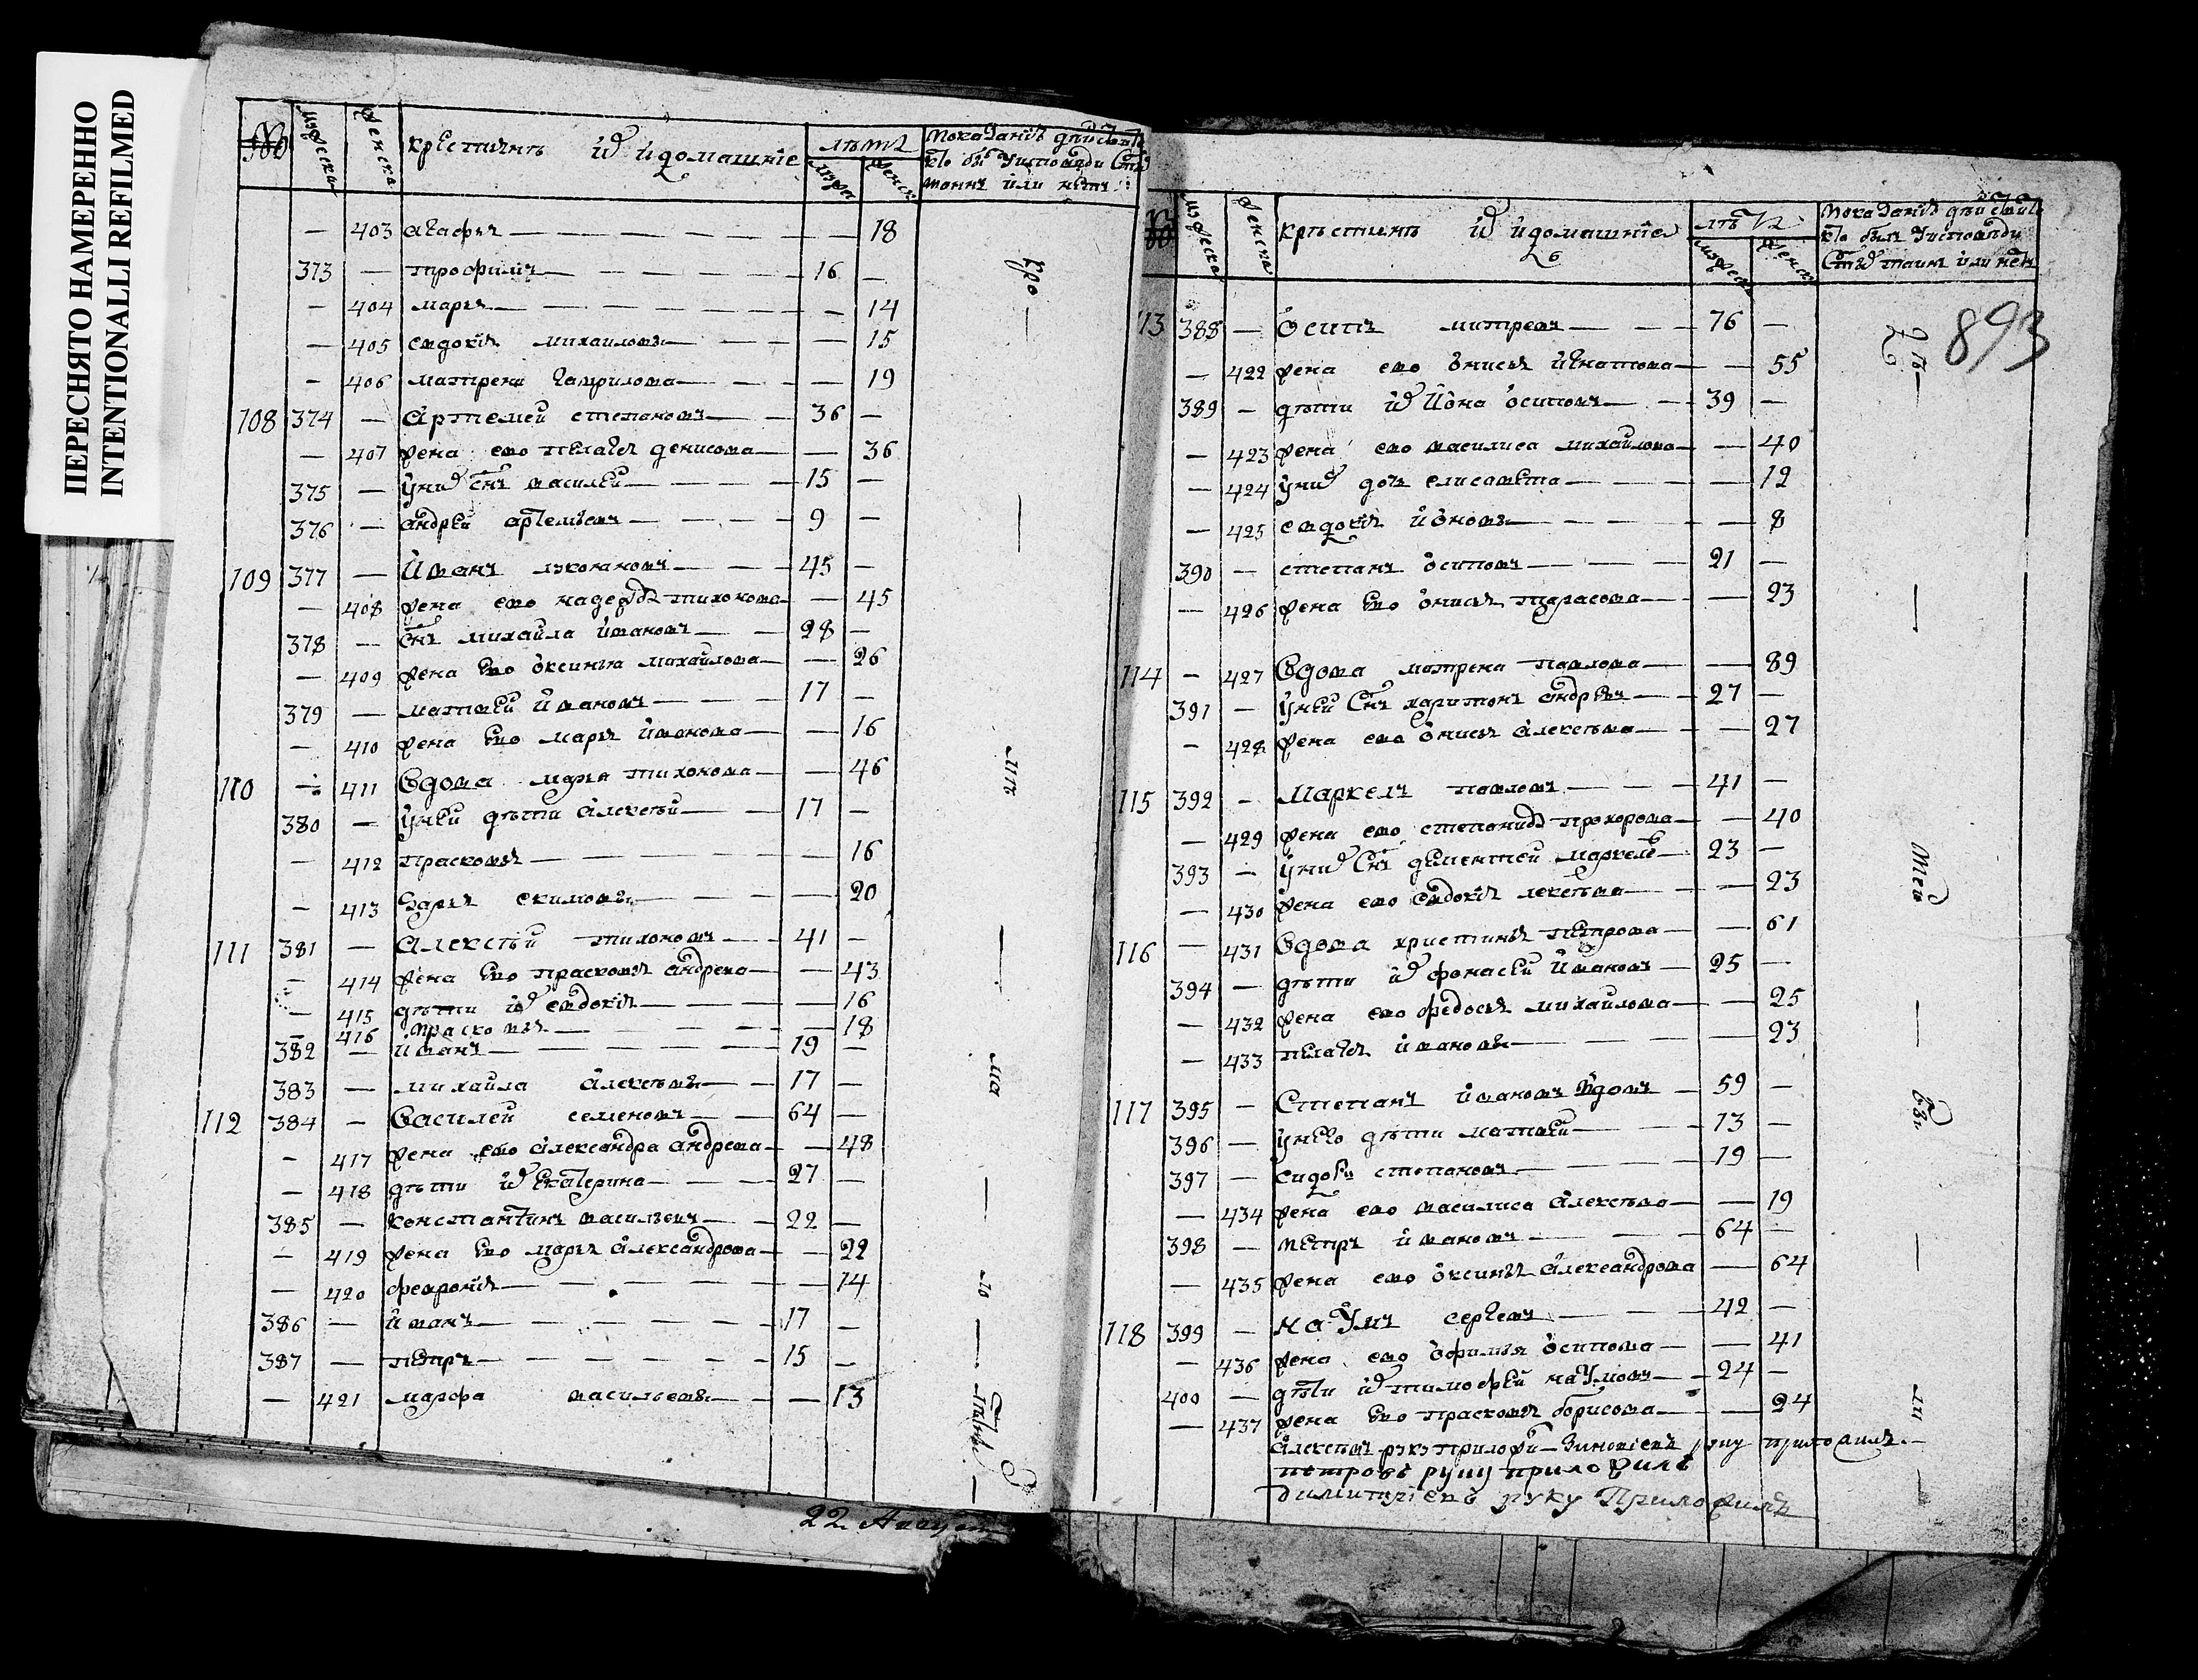 ПЕРЕСНЯТО НАМЕРЕННО
INTENTIONALLI REFILMED
мужеска женска крестьянъ их и домашние лета показание действа
кто был у исповеди
мужеска женск таинъ или нетъ
— 403 агафья — 18
373 — трофимъ — 16 —
— 404 марья — 14
— 405 евдокия михаиловы — 15
— 406 матрена гаврилова — 19
108 374 — Артемей степановъ — 36 —
— 407 жена ево пелагея денисова — 36
375 — у них снъ василей — 15 —
376 — андрей артемьевы — 9 —
109 377 — Иванъ лукояновъ — 45 —
— 408 жена ево надежда тихонова — 45
378 — снъ михайла ивановъ — 28 —
— 409 жена ево оксинья михайлова — 26
379 — матвей ивановъ — 17 —
— 410 жена ево марья иванова — 16
110 — 411 Вдова марья тихонова — 46
380 — у ней дети алексей — 17 —
— 412 прасковья — 16
— 413 дарья екимовы — 20
111 381 — Алексей тихоновъ — 41 —
— 414 жена ево прасковья андреева — 43
— 415 дети их евдокия — 16
— 416 прасковья — 18
382 — иванъ — 19 —
383 — михайла алексеевы — 17 —
112 384 — Василей семеновъ — 64 —
— 417 жена ево александра андреева — 48
— 418 дети их екатерина — 27 —
385 — константинъ васильевъ — 22 —
— 419 жена ево марья александрова — 22
— 420 феврония — 14
386 — иванъ — 17 —
387 — петръ — 15 —
— 421 марфа васильевы — 13
22 Август
мужеска женска крестьянъ их и домашние летъ показание действа
кто былъ у исповеди
мужеска женск таинъ или нетъ
893
113 388 — Осипъ митревъ — 76 —
— 422 жена ево онисья игнатова — 55
389 — дети их иона осиповъ — 39 —
— 423 жена ево василиса михайлова — 40
— 424 у них дочь елисавета — 12
— 425 евдокия ионовы — 8
390 — степанъ осиповъ — 21 —
— 426 жена ево онисья тарасова — 23
114 — 427 Вдова матрена павлова — 89
391 — у ней снъ харитонъ андревъ — 27 —
— 428 жена ево онисья алексеева — 27
115 392 — Маркелъ павловъ — 41 —
— 429 жена ево степанида прохорова — 40
393 — у них снъ дементей маркелов — 23 —
— 430 жена ево евдокия лексеева — 23
116 — 431 Вдова христинья петрова — 61
394 — дети их фонасей ивановъ — 25 —
— 432 жена ево федосья михайлова — 25
— 433 пелагея ивановы — 23
117 395 — Степанъ ивановъ вдовъ — 59 —
396 — у нево дети матвей — 13 —
397 — сидоръ степановы — 19 —
— 434 жена ево василиса алексеева — 19
398 — петръ ивановъ — 64 —
— 435 жена ево оксинья александрова — 64
118 399 — Наумъ сергеевъ — 42 —
— 436 жена ево офимья осипова — 41
400 — дети их тимофей наумовъ — 24 —
— 437 жена ево прасковья борисова — 24
алексеевъ руку приложи — Зиновиевъ руку приложилъ
петровъ руку приложилъ
димитриевъ руку Приложилъ